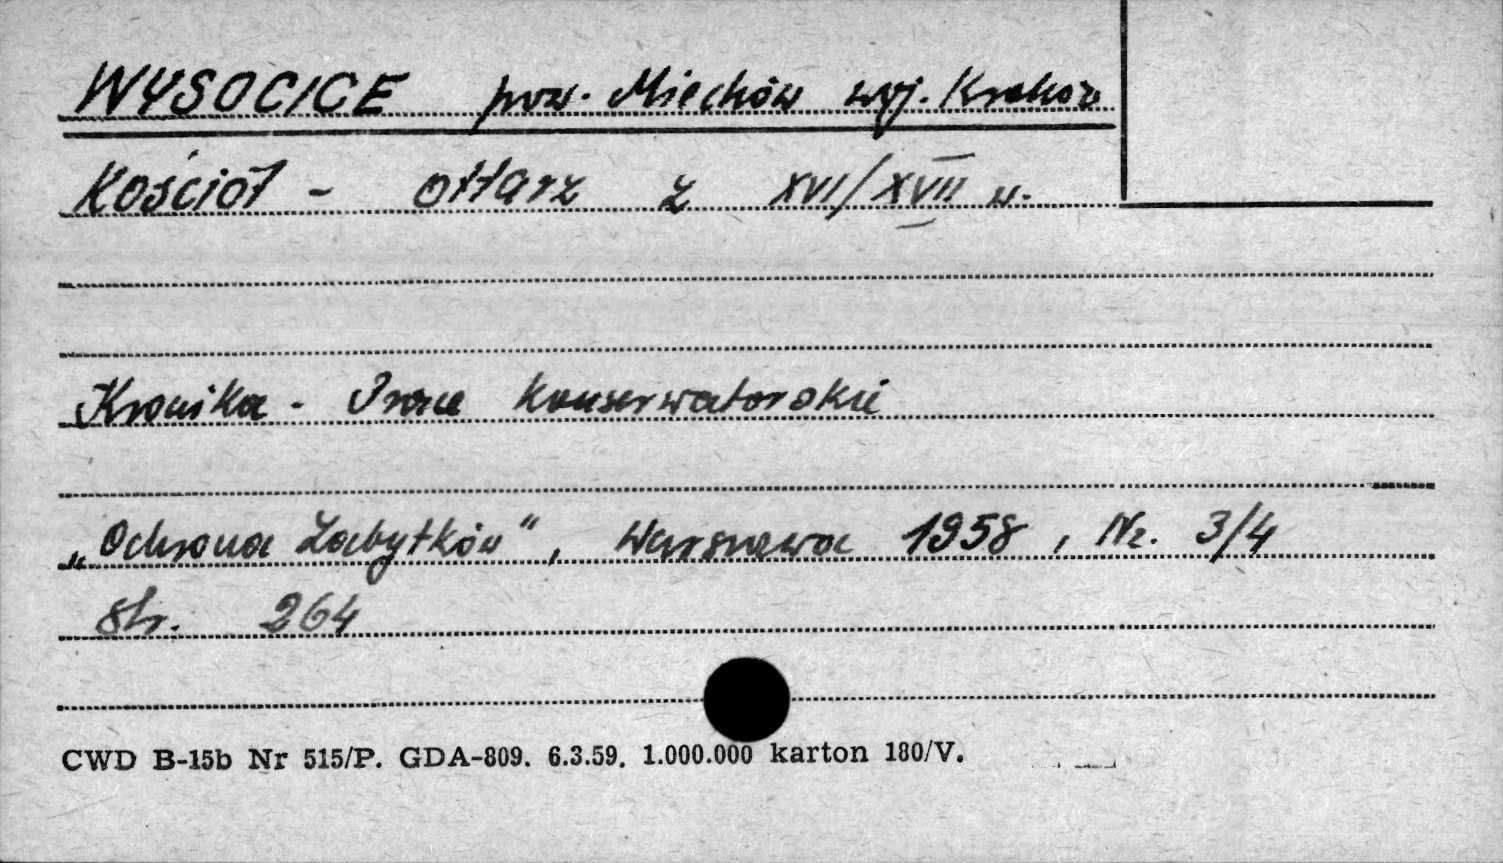 WYSOCICE pow. Miechów woj. Kraków
Kościół - ołtarz z XVI/XVII w.
Kronika - Prace konserwatorskie
„Ochrona Zabytków", Warszawa 1958, Nr. 3/4
str. 264
CWD B-15b Nr 515/P. GDA-809. 6.3.59. 1.000.000 karton 180/V.